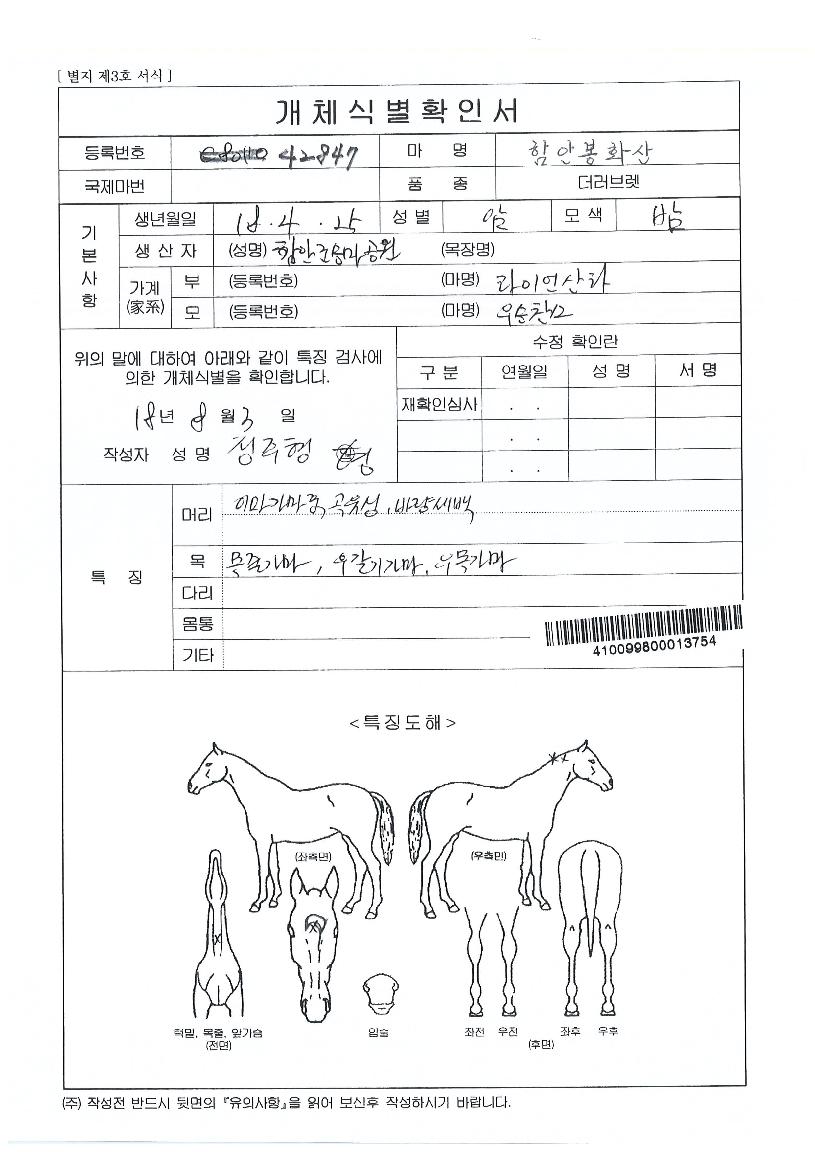 [ 별지 제3호 서식 ]
개체식별확인서
등록번호 42847 마 명 함안봉화산
국제마번 품 종 더러브렛
기본사항
생년월일 18. 4 . 25 성 별 암 모 색 밤
생 산 자 (성명) 함안군승마공원 (목장명)
가계(家系) 부 (등록번호) (마명) 라이언산타
모 (등록번호) (마명)
위의 말에 대하여 아래와 같이 특징 검사에
의한 개체식별을 확인합니다.
18년 8월 3일
작성자 성 명 정주형
수정 확인란
구 분 연월일 성 명 서 명
재확인심사 . .
. .
. .
특 징
머리 이마가마, 곡유성, 비량세백
목 목줄가마, 우갈기가마, 우목가마
다리
몸통
기타
410099800013754
<특징도해>
(좌측면) (우측면)
턱밑, 목줄, 앞가슴 입술 좌전 우전 좌후 우후
(전면) (후면)
(주) 작성전 반드시 뒷면의 『유의사항』을 읽어 보신후 작성하시기 바랍니다.